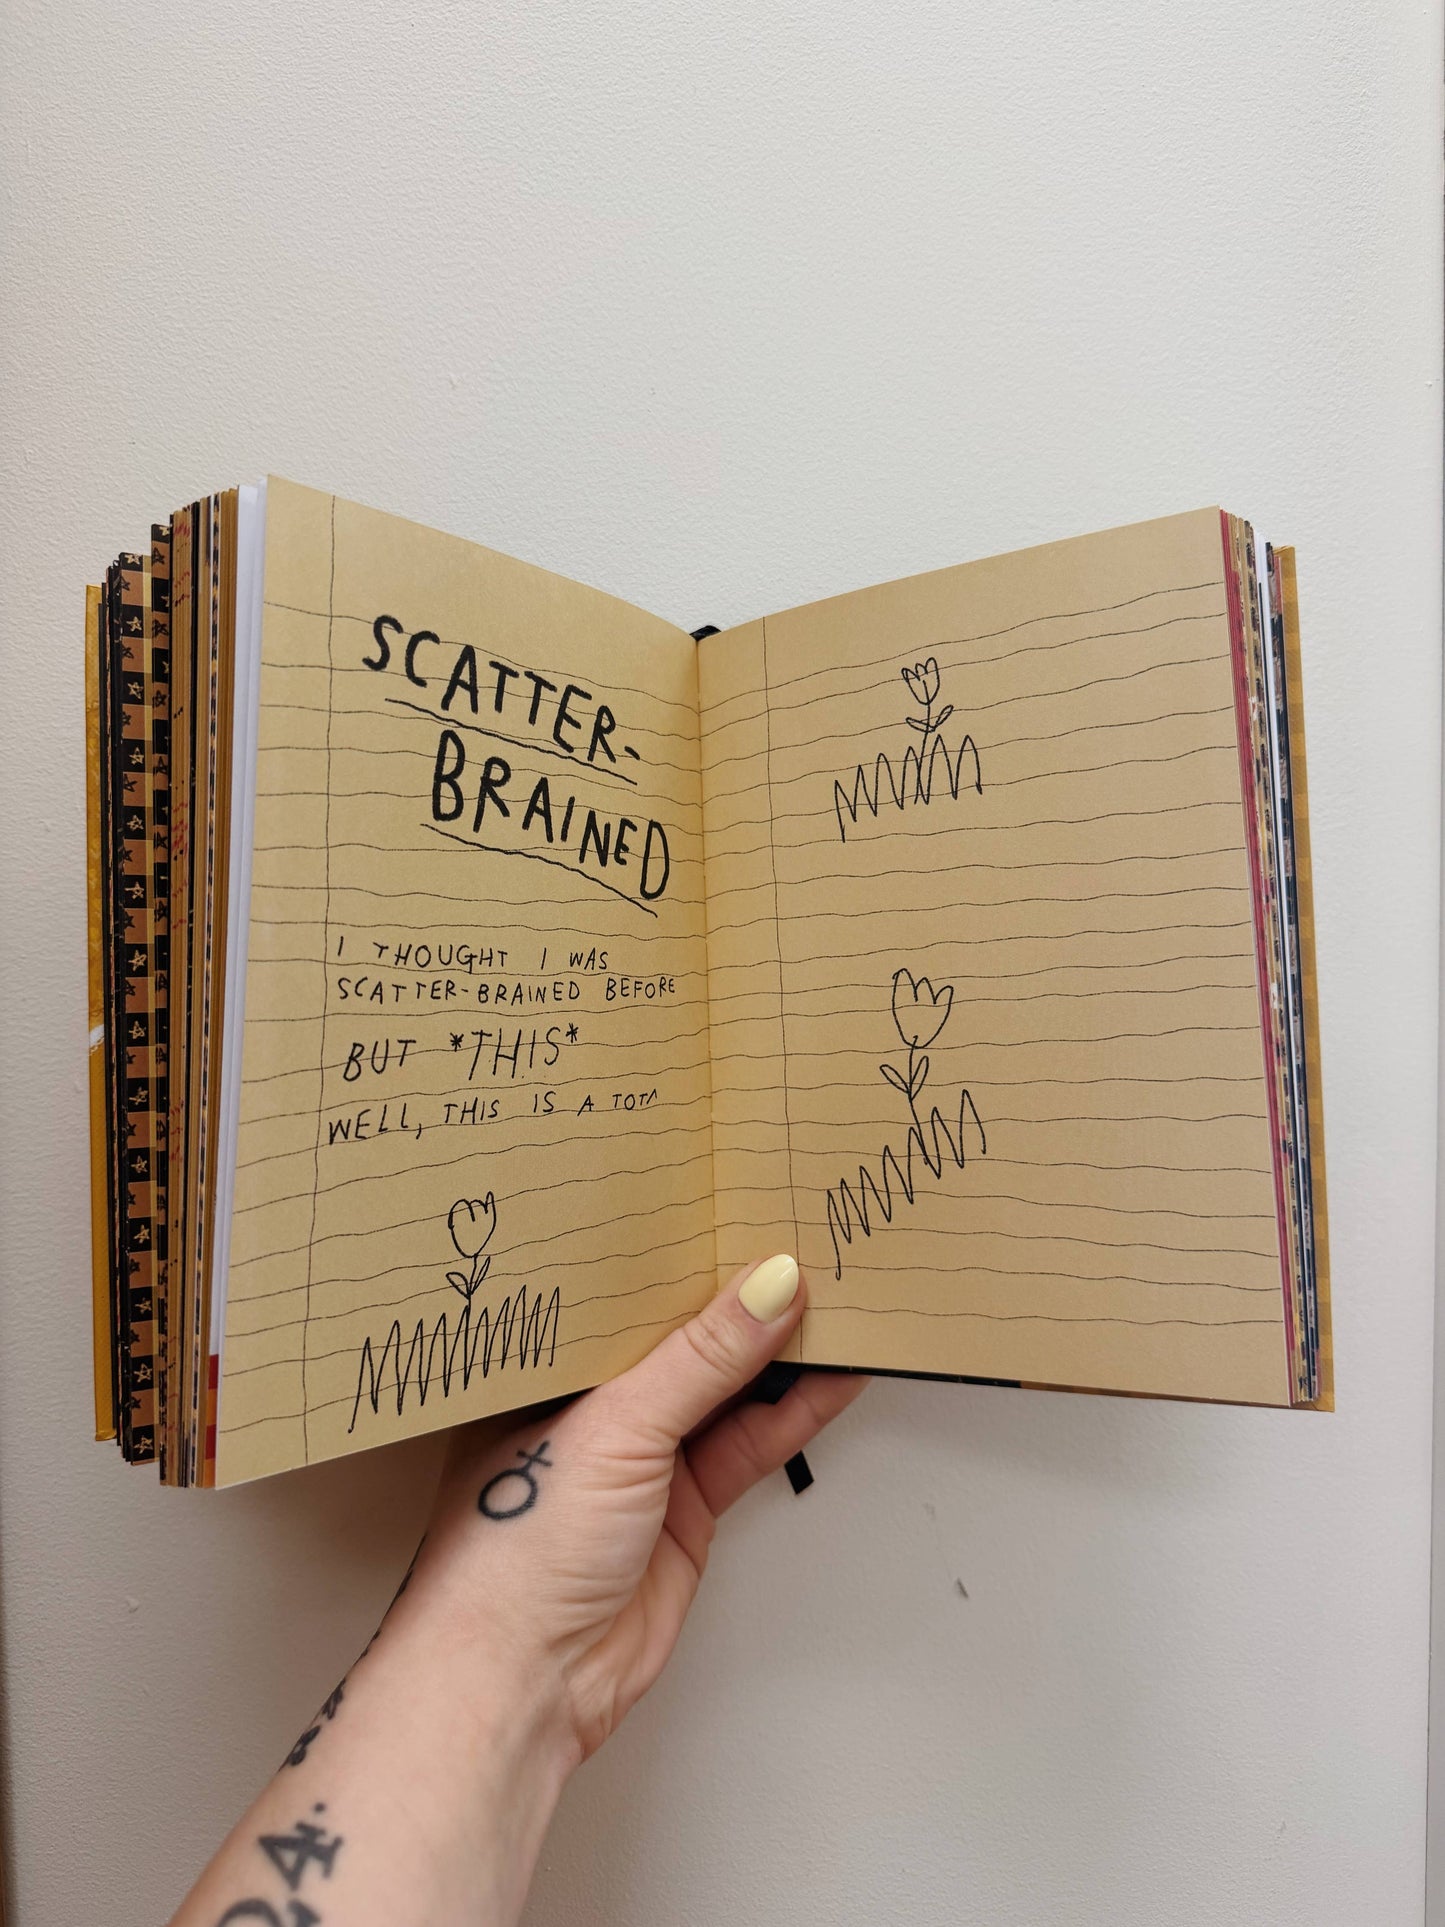 SCATTER-
BRAINED
I THOUGHT I WAS
SCATTER-BRAINED BEFORE
BUT *THIS*
WELL, THIS IS A TOTA
24.